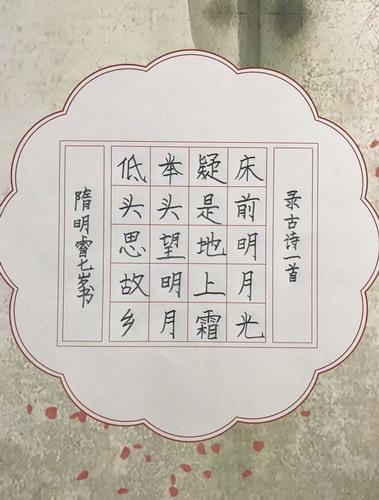 录古诗一首
床前明月光
疑是地上霜
举头望明月
低头思故乡
隋明睿七岁书